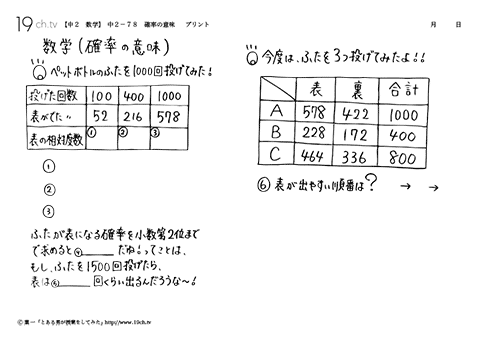 19ch.tv 【中2 数学】 中2-78 確率の意味 プリント
月 日
数学(確率の意味)
ペットボトルのふたを1000回投げてみた!
投げた回数 100 400 1000
表がでた〃 52 216 578
表の相対度数 ① ② ③
①
②
③
ふたが表になる確率を小数第2位まで
で求めると④______だね!ってことは、
もし、ふたを1500回投げたら、
表は⑤______回くらい出るんだろうな〜!
今度は、ふたを3つ投げてみたよ!!
表 裏 合計
A 578 422 1000
B 228 172 400
C 464 336 800
⑥ 表が出やすい順番は? → →
© 葉一「とある男が授業をしてみた」http://www.19ch.tv